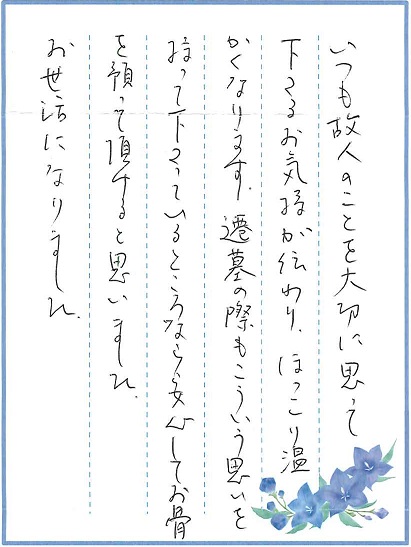 いつも故人のことを大切に思って
下さるお気持が伝わり、ほっこり温
かくなります。遷墓の際もこういう思いを
持って下さっているところなら安心してお骨
を預って頂けると思いました。
お世話になりました。